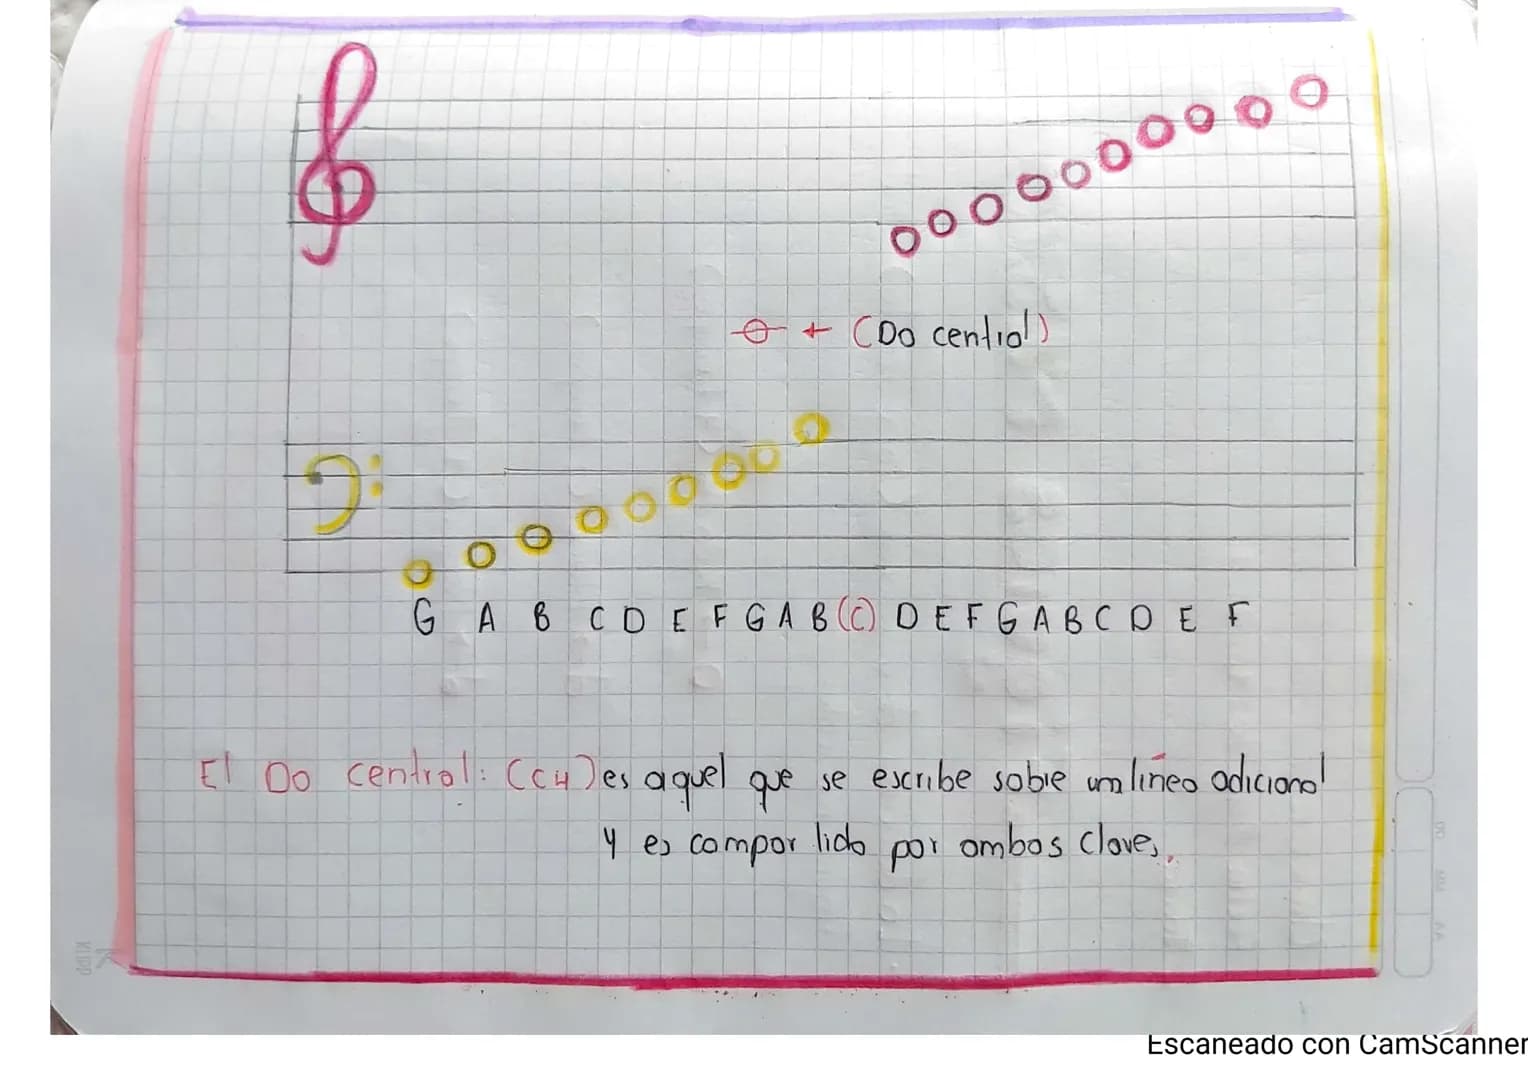 + (Do central)
G A B C D E F G A B (C) D E F G A B C D E F
El Do central: (C4) es aquel que se escribe sobre una línea adicional
y es compartido por ambas claves.
Escaneado con CamScanner